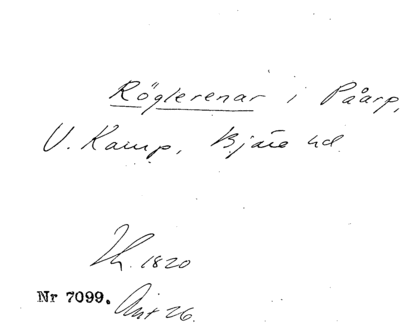 Röglerenar i Påarp,
V. Karup, Bjäre hd
Lh. 1820
Nr 7099. Akt 26.